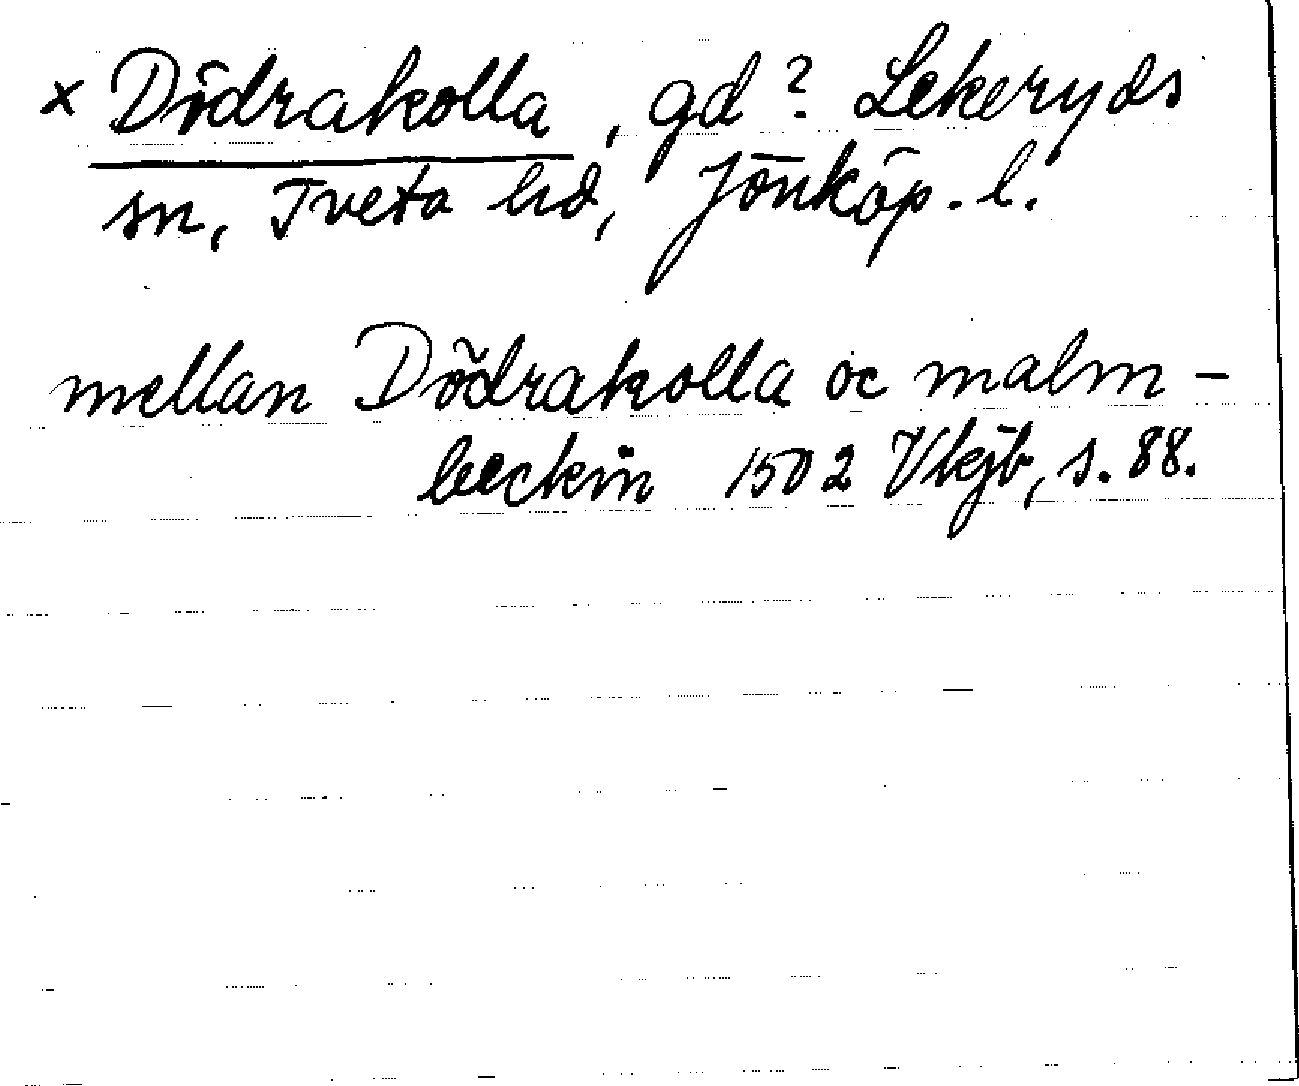 × Dödrakolla, gd? Lekeryds
sn, Tveta hd, Jönköp. l.
mellan Dödrakolla oc malm-
beckin 1502 Vkjb, s. 88.